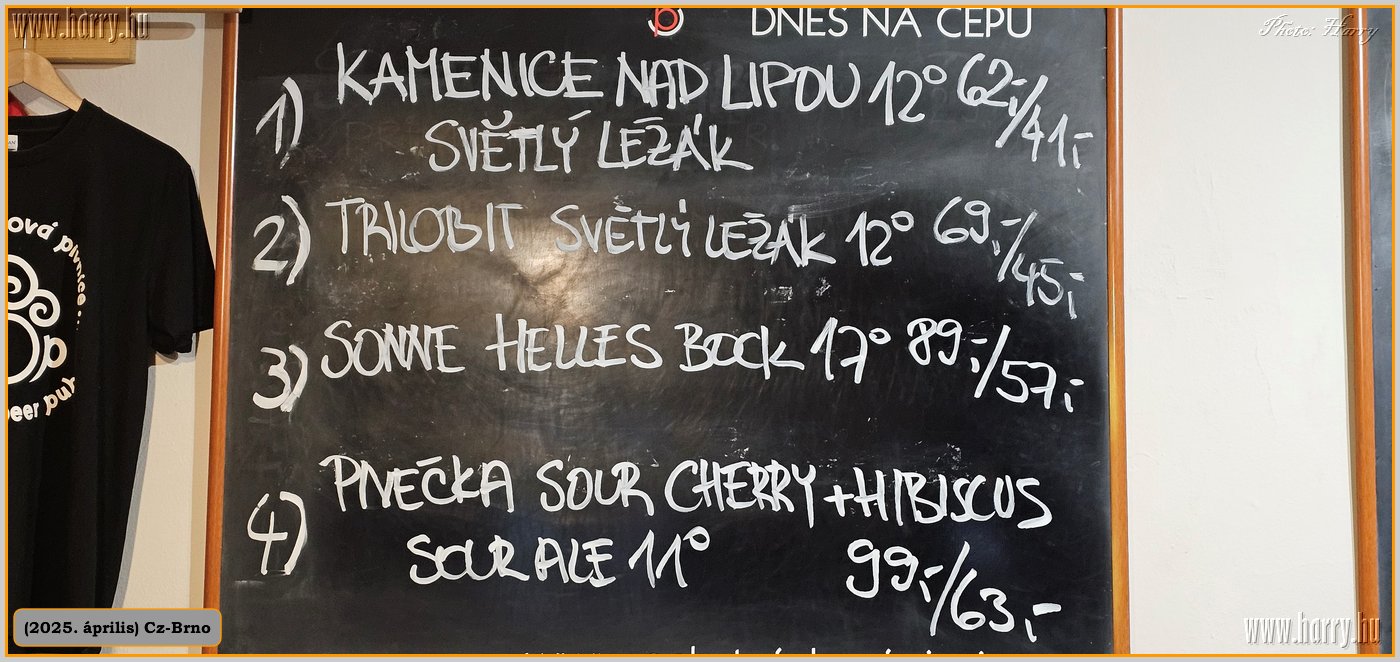 www.harry.hu
Photo: Harry
DNES NA ČEPU
1) KAMENICE NAD LIPOU 12° 62,-/41,-
SVĚTLÝ LEŽÁK
2) TRILOBIT SVĚTLÝ LEŽÁK 12° 69,-/45,-
3) SONNE HELLES BOCK 17° 89,-/57,-
4) PIVEČKA SOUR CHERRY + HIBISCUS
SOUR ALE 11° 99,-/63,-
ová pivnice
beer pub
(2025. április) Cz-Brno
www.harry.hu